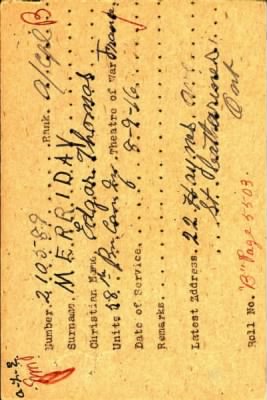 B
Number. 2105589 Rank. a/cpl
Surname. MERRIDAY
Christian Name. Edgar Thomas
Units Theatre of War France
Date of Service. 8-9-16
Remarks.
Latest Address. 22 Haynes ave
St. Catharines
Ont
Roll No. "B" Page 5503.